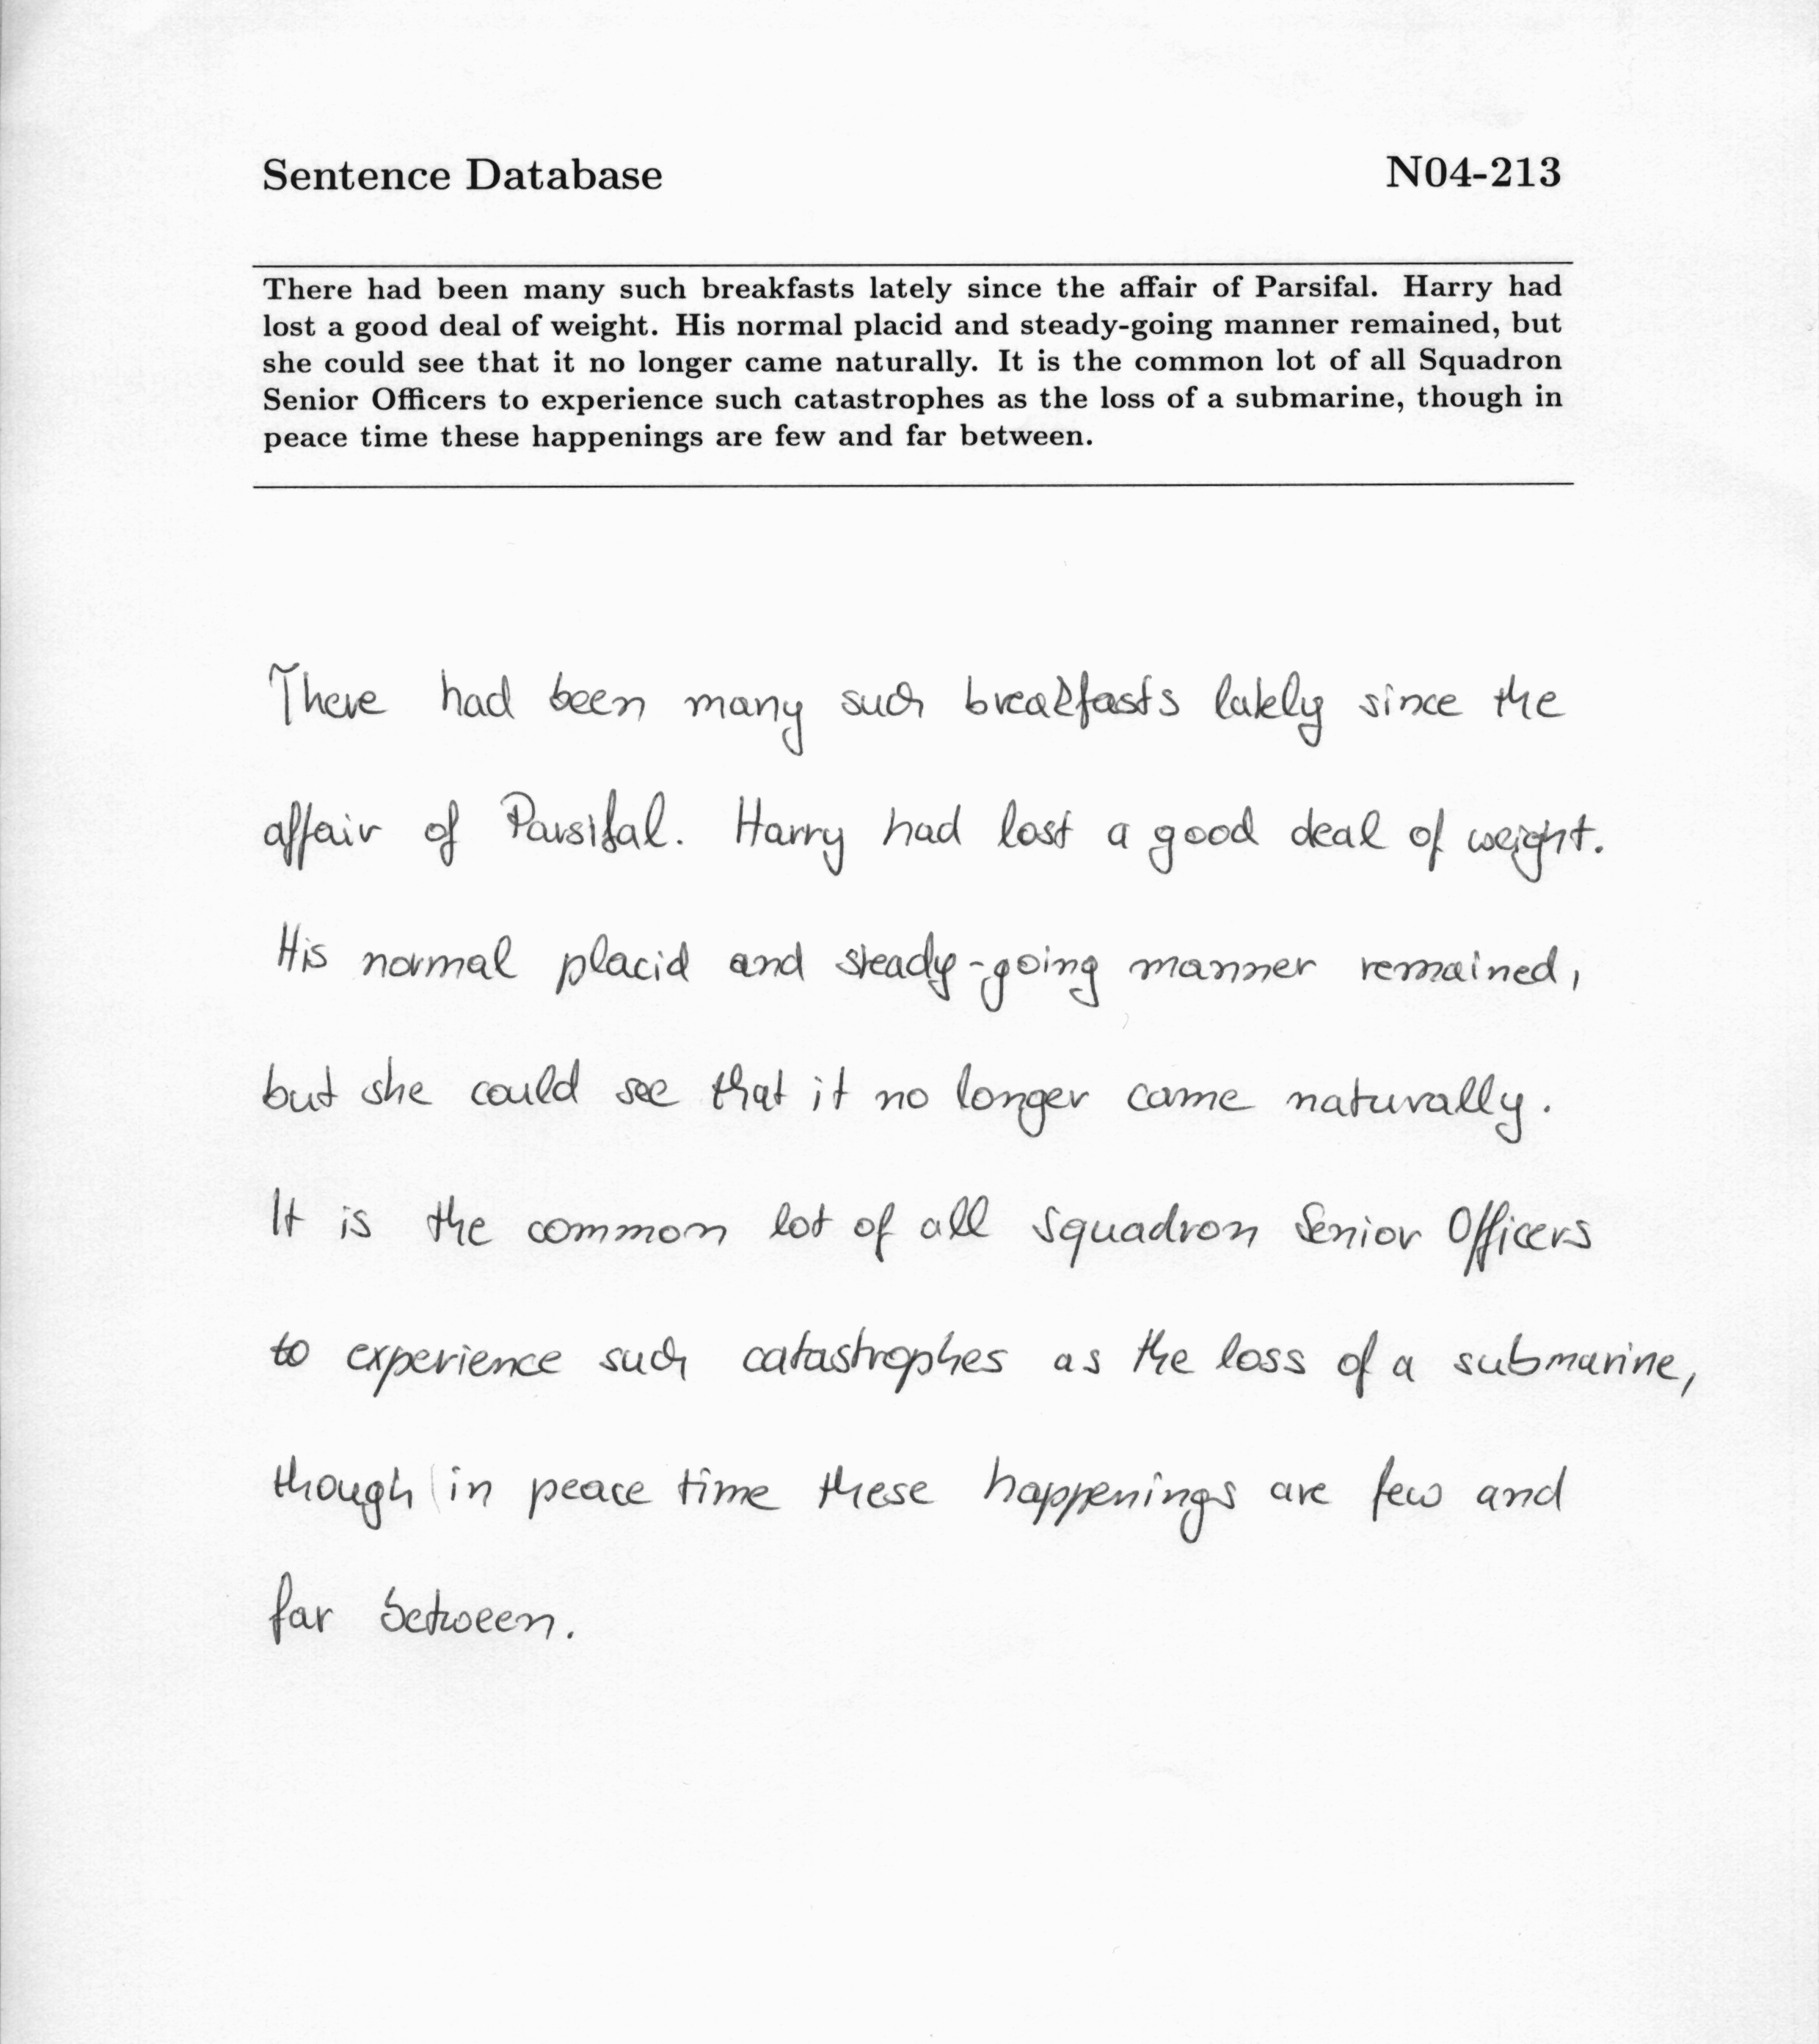 Sentence Database N04-213
There had been many such breakfasts lately since the affair of Parsifal. Harry had
lost a good deal of weight. His normal placid and steady-going manner remained, but
she could see that it no longer came naturally. It is the common lot of all Squadron
Senior Officers to experience such catastrophes as the loss of a submarine, though in
peace time these happenings are few and far between.
There had been many such breakfasts lately since the
affair of Parsifal. Harry had lost a good deal of weight.
His normal placid and steady-going manner remained,
but she could see that it no longer came naturally.
It is the common lot of all Squadron Senior Officers
to experience such catastrophes as the loss of a submarine,
though in peace time these happenings are few and
far between.